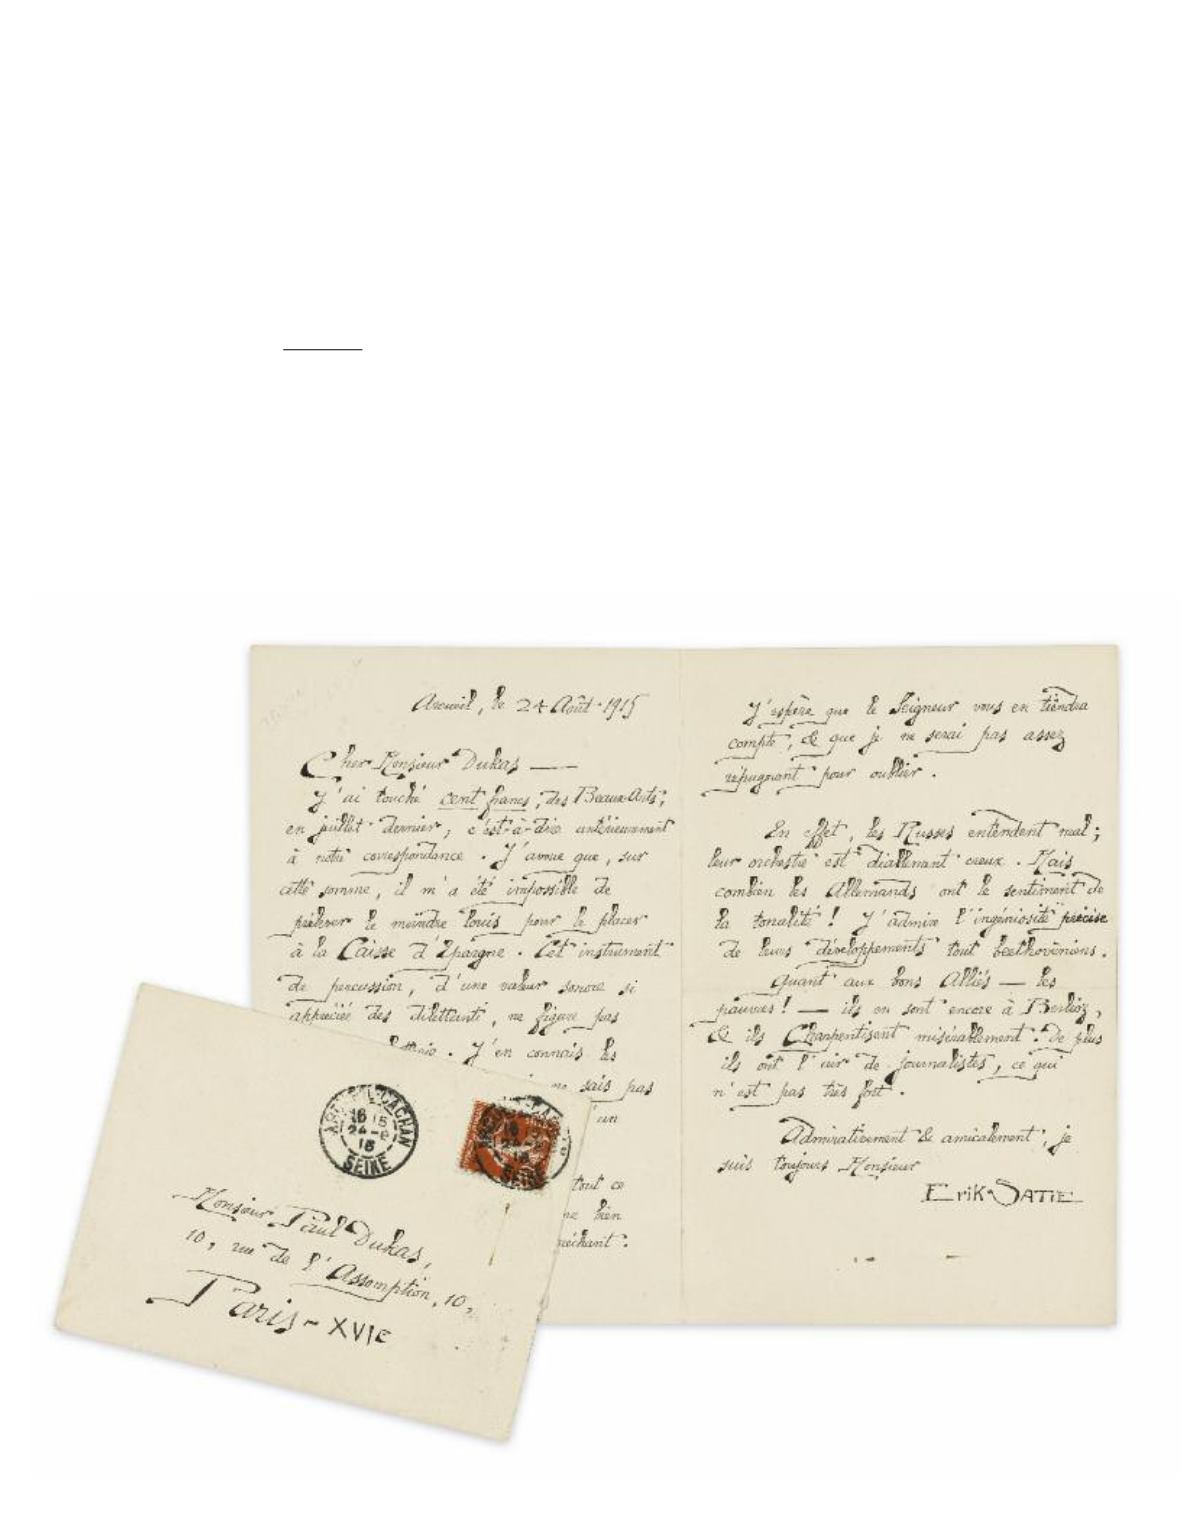 Arcueil, le 24 Août 1915
Cher Monsieur Dukas —
J'ai touché cent francs, des Beaux-Arts,
en juillet dernier, c'est-à-dire antérieurement
à notre correspondance. J'avoue que, sur
cette somme, il m'a été impossible de
prélever le moindre louis pour le placer
à la Caisse d'Épargne. Cet instrument
de percussion, d'une valeur sonore si
appréciée des dilettanti, ne figure pas
J'en connais les
ne sais pas
un
tout ce
bien
méchant.
J'espère que le Seigneur vous en tiendra
compte, & que je ne serai pas assez
répugnant pour oublier.
En effet, les Russes entendent mal;
leur orchestre est creux. Mais
combien les Allemands ont le sentiment de
la tonalité! J'admire l'ingéniosité précise
de leurs développements tout beethovéniens.
Quant aux bons Alliés — les
pauvres! — ils en sont encore à Berlioz,
& ils Charpentisent misérablement. De plus
ils ont l'air de journalistes, ce qui
n'est pas très fort.
Admirativement & amicalement, je
suis toujours Monsieur
Erik SATIE
ARCUEIL-CACHAN
16 15
24-8
15
SEINE
Monsieur Paul Dukas,
10, rue de l'Assomption, 10,
Paris - XVIe